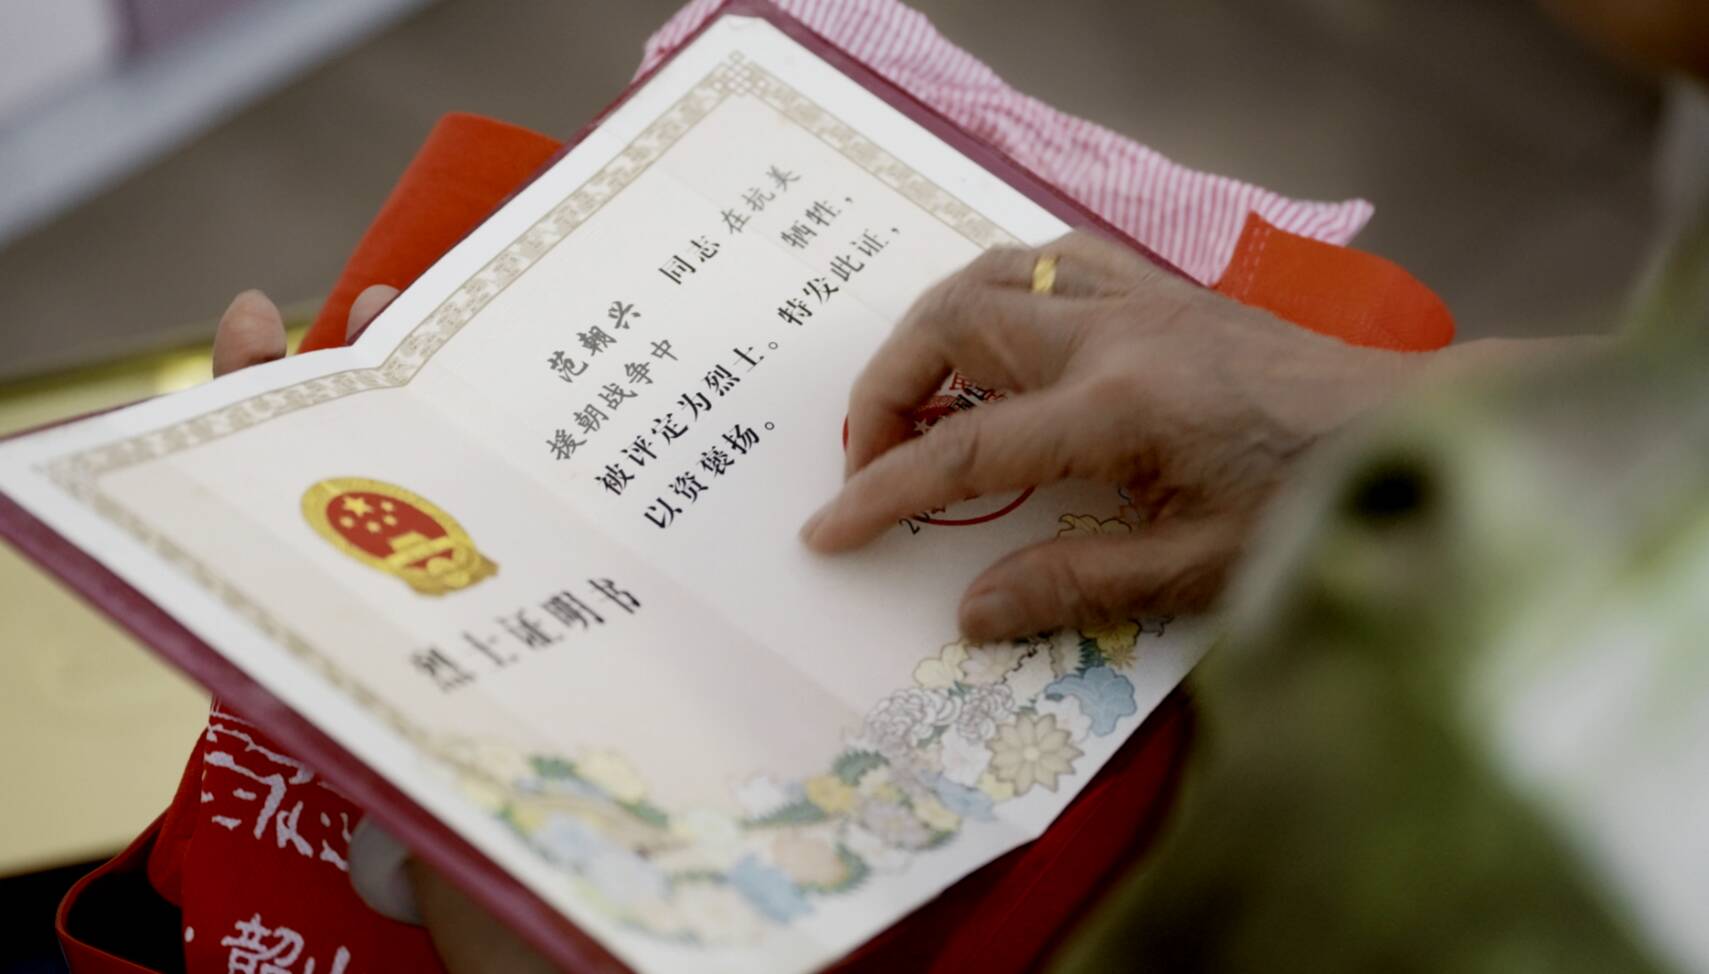 烈士证明书
范朝兴 同志 在抗美
援朝战争中 牺牲，
被评定为烈士。特发此证，
以资褒扬。